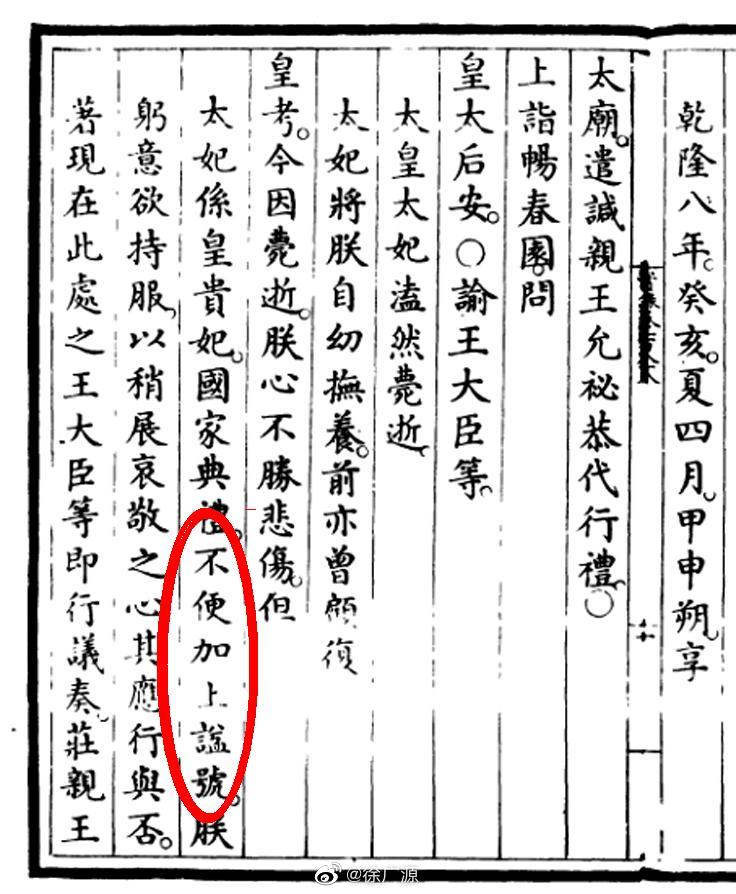 乾隆八年。癸亥。夏四月。甲申朔。享
太廟。遣諴親王允祕恭代行禮。○
上詣暢春園。問
皇太后安。○諭王大臣等。
太皇太妃溘然薨逝。
太妃將朕自幼撫養。前亦曾顧復
皇考。今因薨逝。朕心不勝悲傷。但
太妃係皇貴妃。國家典禮。不便加上謚號。朕
躬意欲持服。以稍展哀敬之心其應行與否。
著現在此處之王大臣等即行議奏。莊親王
@徐广源